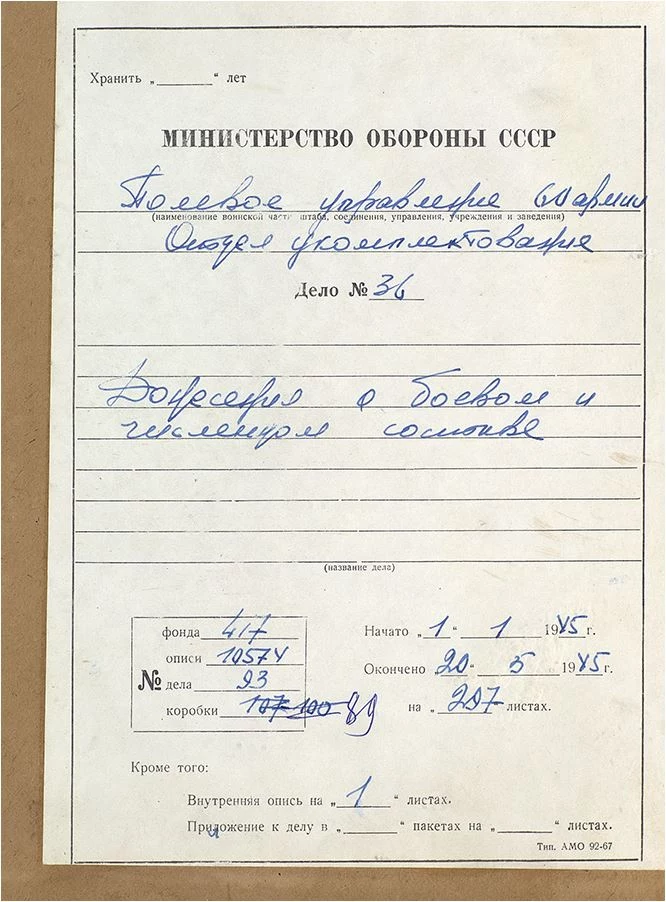 Хранить „ “ лет
МИНИСТЕРСТВО ОБОРОНЫ СССР
Полевое управление 60 армии
(наименование воинской части штаба, соединения, управления, учреждения и заведения)
Отдел укомплектования
Дело № 36
Донесения о боевом и
численном составе
(название дела)
№
фонда 417
описи 10574
дела 93
коробки 107-100 89
Начато „ 1 “ 1 1945 г.
Окончено 20 “ 5 1945 г.
на „ 207 листах.
Кроме того:
Внутренняя опись на „ 1 “ листах.
Приложение к делу в „ “ пакетах на „ “ листах.
Тип. АМО 92-67